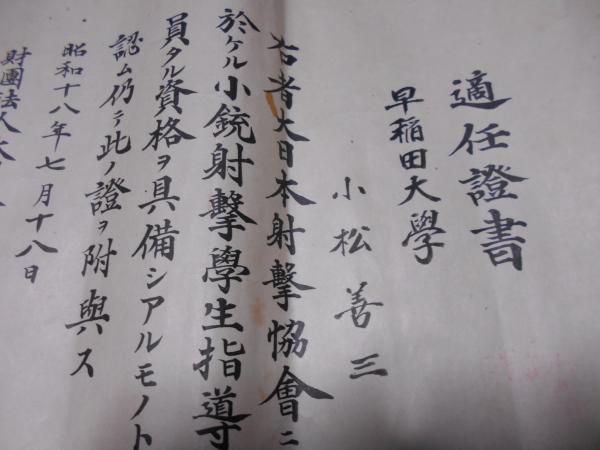 適任證書
早稲田大學
小松善三
右者大日本射擊協會ニ
於ケル小銃射擊學生指導
員タル資格ヲ具備シアルモノト
認ム仍テ此ノ證ヲ附與ス
昭和十八年七月十八日
財團法人大日